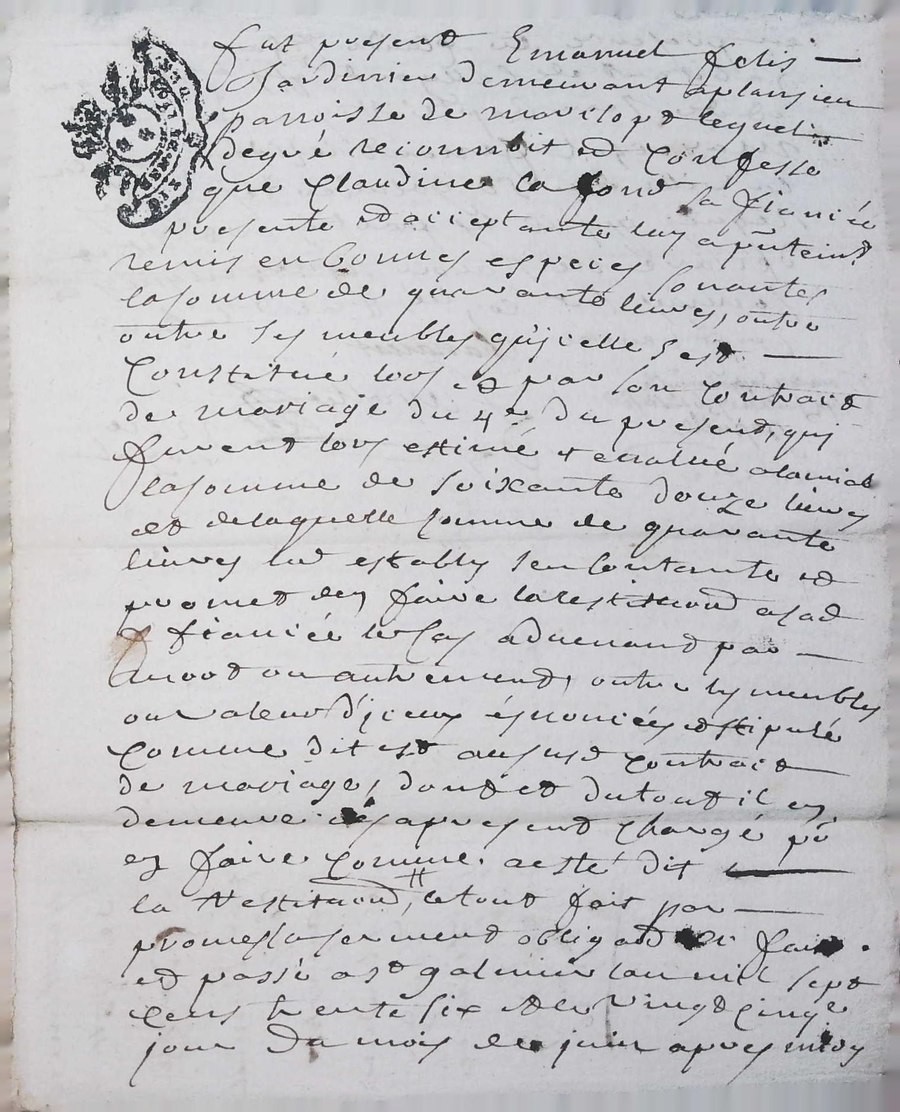 fut present Emanuel felis
Jardinier demeurant a plansieu
parroisse de lequel
degré reconnoit et confesse
que Claudine lafond sa fiancée
presente et acceptante luy a pñtemt
remis en bonnes especes sonantes
la somme de quarante livres, outre
outre ses meubles qu'jcelle s'est
Constitué lors et par son contract
de mariage du 4e du present, qui
furent lors estimé & evalué alamiab
la somme de soixante douze livres
et de laquelle somme de quarante
livres led estably se contante et
promet den faire la restitution a sad
fiancée le cas advenant par
mort ou autrement, outre les meubles
ou valeur d'jceux énoncées et stipulé
comme dit est au susd contract
de mariage, dont et du tout il en
demeure des apresent chargé pr
en faire comme a esté dit
la Restitution, le tout fait par
promesse serment obligaon fait
et passé a st galmier lan mil sept
cens trente six et le vingt cinqe
jour du mois de juin apres midy